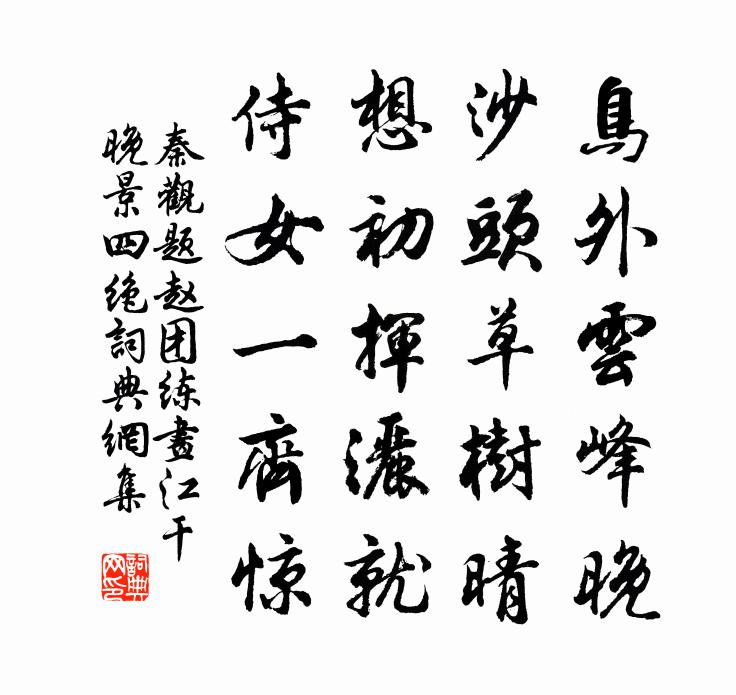 鳥外雲峰晚
沙頭草樹晴
想初揮灑就
侍女一齊惊
秦觀題赵团练畫江干
晚景四绝詞典網集
詞典
网印